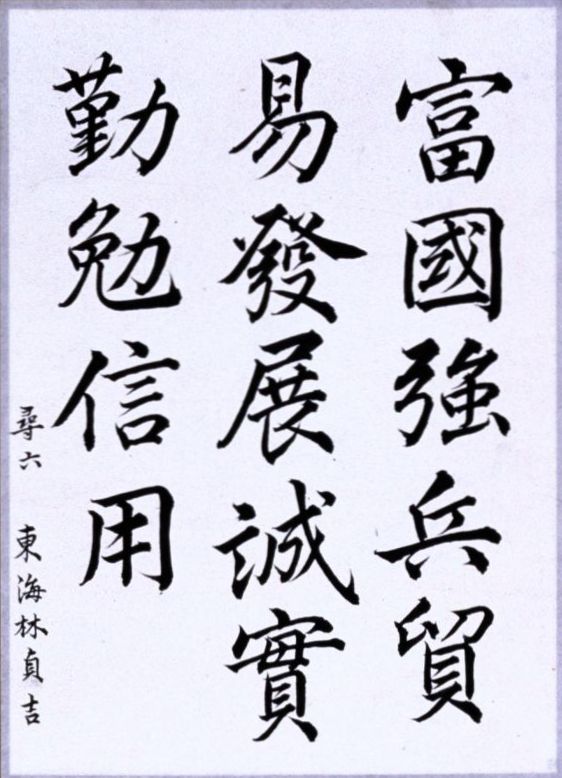 富國強兵貿
易發展誠實
勤勉信用
尋六 東海林貞吉